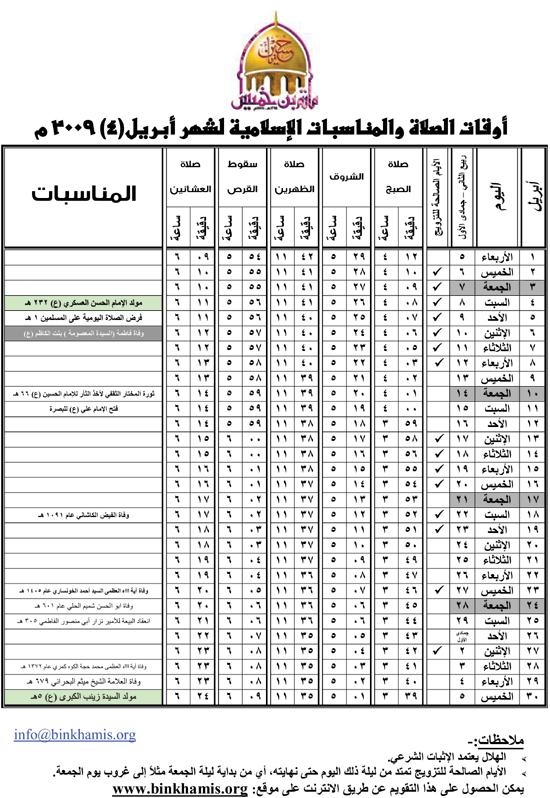 أوقات الصلاة والمناسبات الإسلامية لشهر أبريل(٤) ٢٠٠٩ م
أبريل اليوم ربيع الثاني - جمادى الأول الأيام الصالحة للتزويج صلاة الصبح الشروق صلاة الظهرين سقوط القرص صلاة العشائين المناسبات
دقيقة ساعة دقيقة ساعة دقيقة ساعة دقيقة ساعة دقيقة ساعة
١ الأربعاء ٥ ١٢ ٤ ٢٩ ٥ ٤٢ ١١ ٥٤ ٥ ٠٩ ٦
٢ الخميس ٦ ✓ ١٠ ٤ ٢٨ ٥ ٤١ ١١ ٥٥ ٥ ١٠ ٦
٣ الجمعة ٧ ✓ ٠٩ ٤ ٢٧ ٥ ٤١ ١١ ٥٥ ٥ ١٠ ٦
٤ السبت ٨ ✓ ٠٨ ٤ ٢٦ ٥ ٤١ ١١ ٥٦ ٥ ١١ ٦ مولد الإمام الحسن العسكري (ع) ٢٣٢ هـ
٥ الأحد ٩ ✓ ٠٧ ٤ ٢٥ ٥ ٤٠ ١١ ٥٦ ٥ ١١ ٦ فرض الصلاة اليومية على المسلمين ١ هـ
٦ الإثنين ١٠ ✓ ٠٦ ٤ ٢٤ ٥ ٤٠ ١١ ٥٧ ٥ ١٢ ٦ وفاة فاطمة (السيدة المعصومة ) بنت الكاظم (ع)
٧ الثلاثاء ١١ ✓ ٠٥ ٤ ٢٣ ٥ ٤٠ ١١ ٥٧ ٥ ١٢ ٦
٨ الأربعاء ١٢ ✓ ٠٣ ٤ ٢٢ ٥ ٤٠ ١١ ٥٨ ٥ ١٣ ٦
٩ الخميس ١٣ ٠٢ ٤ ٢١ ٥ ٣٩ ١١ ٥٨ ٥ ١٣ ٦
١٠ الجمعة ١٤ ٠١ ٤ ٢٠ ٥ ٣٩ ١١ ٥٩ ٥ ١٤ ٦ ثورة المختار الثقفي لأخذ الثأر للإمام الحسين (ع) ٦٦ هـ
١١ السبت ١٥ ٠٠ ٤ ١٩ ٥ ٣٩ ١١ ٥٩ ٥ ١٤ ٦ فتح الإمام علي (ع) للبصرة
١٢ الأحد ١٦ ٥٩ ٣ ١٨ ٥ ٣٨ ١١ ٥٩ ٥ ١٤ ٦
١٣ الإثنين ١٧ ✓ ٥٨ ٣ ١٧ ٥ ٣٨ ١١ ٠٠ ٦ ١٥ ٦
١٤ الثلاثاء ١٨ ✓ ٥٦ ٣ ١٦ ٥ ٣٨ ١١ ٠٠ ٦ ١٥ ٦
١٥ الأربعاء ١٩ ✓ ٥٥ ٣ ١٥ ٥ ٣٨ ١١ ٠١ ٦ ١٦ ٦
١٦ الخميس ٢٠ ✓ ٥٤ ٣ ١٤ ٥ ٣٧ ١١ ٠١ ٦ ١٦ ٦
١٧ الجمعة ٢١ ٥٣ ٣ ١٣ ٥ ٣٧ ١١ ٠٢ ٦ ١٧ ٦
١٨ السبت ٢٢ ✓ ٥٢ ٣ ١٢ ٥ ٣٧ ١١ ٠٢ ٦ ١٧ ٦ وفاة الفيض الكاشاني عام ١٠٩١ هـ
١٩ الأحد ٢٣ ✓ ٥١ ٣ ١١ ٥ ٣٧ ١١ ٠٣ ٦ ١٨ ٦
٢٠ الإثنين ٢٤ ٥٠ ٣ ١٠ ٥ ٣٧ ١١ ٠٣ ٦ ١٨ ٦
٢١ الثلاثاء ٢٥ ٤٩ ٣ ٠٩ ٥ ٣٧ ١١ ٠٤ ٦ ١٩ ٦
٢٢ الأربعاء ٢٦ ٤٧ ٣ ٠٨ ٥ ٣٦ ١١ ٠٤ ٦ ١٩ ٦
٢٣ الخميس ٢٧ ✓ ٤٦ ٣ ٠٧ ٥ ٣٦ ١١ ٠٥ ٦ ٢٠ ٦ وفاة آية الله العظمى السيد أحمد الخونساري عام ١٤٠٥ هـ
٢٤ الجمعة ٢٨ ٤٥ ٣ ٠٦ ٥ ٣٦ ١١ ٠٦ ٦ ٢٠ ٦ وفاة ابو الحسن شميم الحلي عام ٦٠١ هـ
٢٥ السبت ٢٩ ٣ ٥ ٣٦ ١١ ٠٦ ٦ ٢١ ٦ انعقاد البيعة للأمير نزار أبي منصور الفاطمي ٣٠٥ هـ
٢٦ الأحد جمادى الأول ٤٣ ٣ ٥ ٣٥ ١١ ٠٧ ٦ ٢٢ ٦
٢٧ الإثنين ٢ ✓ ٤٢ ٣ ٥ ٣٥ ١١ ٠٨ ٦ ٢٣ ٦
٢٨ الثلاثاء ٣ ٤١ ٣ ٠٢ ٥ ٣٥ ١١ ٠٨ ٦ ٢٣ ٦ وفاة آية الله العظمى محمد حجة الكوه كمري عام ١٣٧٢ هـ
٢٩ الأربعاء ٤ ٤٠ ٣ ٠٢ ٥ ٣٥ ١١ ٠٨ ٦ ٢٣ ٦ وفاة العلامة الشيخ ميثم البحراني ٦٧٩ هـ
٣٠ الخميس ٥ ٣٩ ٣ ٠١ ٥ ٣٥ ١١ ٠٩ ٦ ٢٤ ٦ مولد السيدة زينب الكبرى (ع) ٥هـ
info@binkhamis.org
ملاحظات:-
الهلال يعتمد الإثبات الشرعي.
الأيام الصالحة للتزويج تمتد من ليلة ذلك اليوم حتى نهايته، أي من بداية ليلة الجمعة مثلاً إلى غروب يوم الجمعة.
يمكن الحصول على هذا التقويم عن طريق الانترنت على موقع: www.binkhamis.org